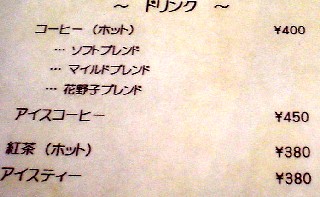 ～ ドリンク ～
コーヒー（ホット） ¥400
… ソフトブレンド
… マイルドブレンド
… 花野子ブレンド
アイスコーヒー ¥450
紅茶（ホット） ¥380
アイスティー ¥380